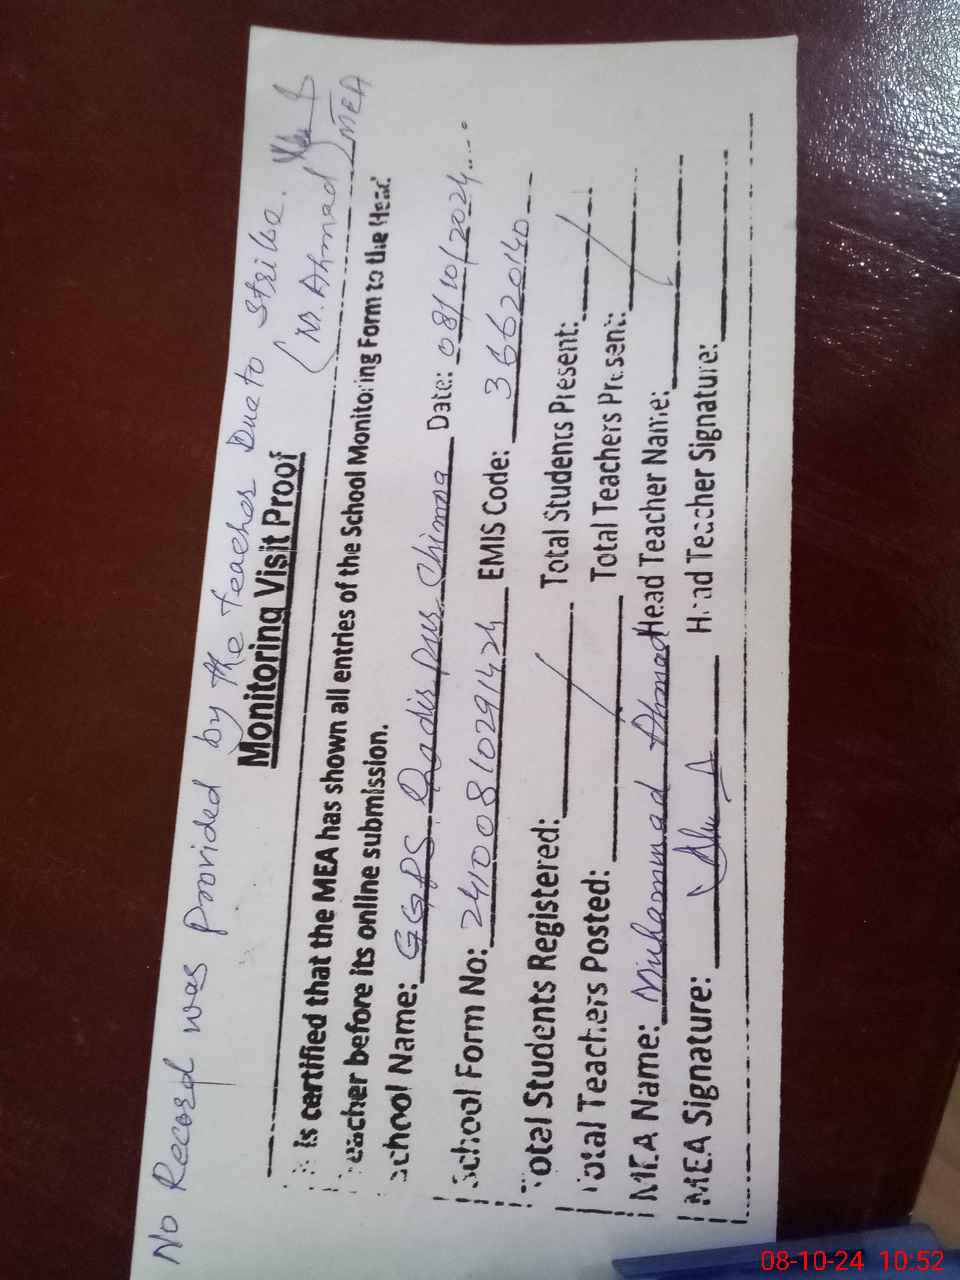 No Record was provided by the teacher Due to strike.
(M. Ahmad) MEA
Monitoring Visit Proof
is certified that the MEA has shown all entries of the School Monitoring Form to the Head
eacher before its online submission.
School Name: GGPS Qadir pur Chima Date: 08/10/2024
School Form No: 24100810291424 EMIS Code: 36620140
Total Students Registered: / Total Students Present: /
Total Teachers Posted: / Total Teachers Present: /
MEA Name: Muhammad Ahmad Head Teacher Name:
MEA Signature: Head Teacher Signature:
08-10-24 10:52